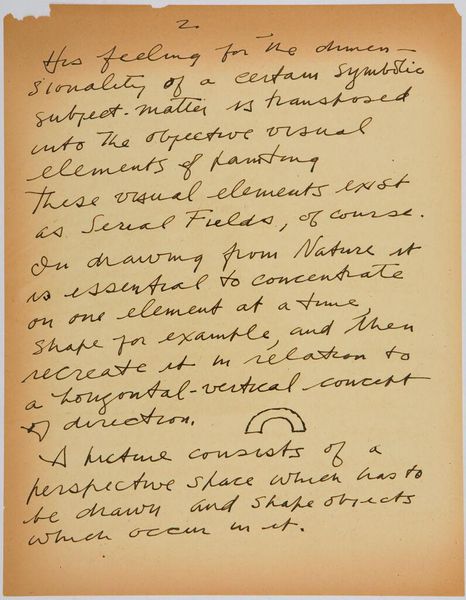 2
His feeling for the dimen-
sionality of a certain symbolic
subject-matter is transposed
into the objective visual
elements of painting
These visual elements exist
as Serial Fields, of course.
In drawing from Nature it
is essential to concentrate
on one element at a time,
shape for example, and then
recreate it in relation to
a horizontal-vertical concept
of direction.
A picture consists of a
perspective space which has to
be drawn and shape objects
which occur in it.